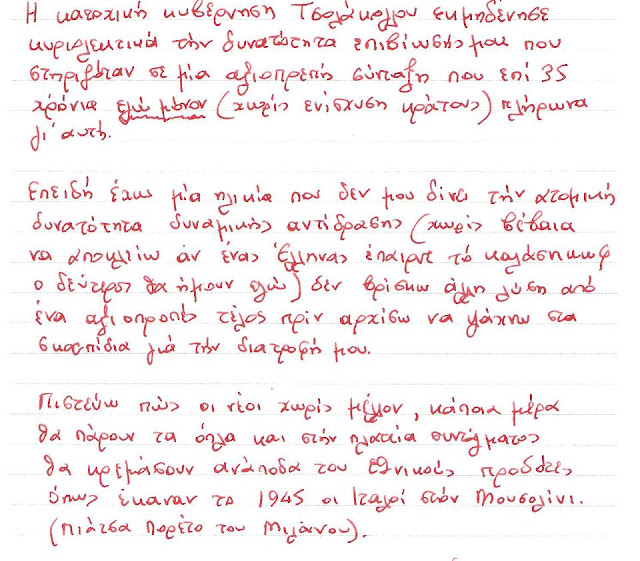 Η κατοχική κυβέρνηση Τσολάκογλου εκμηδένησε
κυριολεκτικά την δυνατότητα επιβίωσής μου που
στηριζόταν σε μία αξιοπρεπή σύνταξη που επί 35
χρόνια εγώ μόνον (χωρίς ενίσχυση κράτους) πλήρωνα
γι' αυτή.
Επειδή έχω μία ηλικία που δεν μου δίνει την ατομική
δυνατότητα δυναμικής αντίδρασης (χωρίς βέβαια
να αποκλείω αν ένας Έλληνας έπαιρνε το καλάσνικωφ
ο δεύτερος θα ήμουν εγώ) δεν βρίσκω άλλη λύση από
ένα αξιοπρεπές τέλος πρίν αρχίσω να ψάχνω στα
σκουπίδια γιά την διατροφή μου.
Πιστεύω πώς οι νέοι χωρίς μέλλον, κάποια μέρα
θα πάρουν τα όπλα και στήν πλατεία συντάγματος
θα κρεμάσουν ανάποδα του εθνικούς προδότες
όπως έκαναν το 1945 οι Ιταλοί στόν Μουσολίνι.
(Πιάτσα Πορέτο του Μιλάνου).